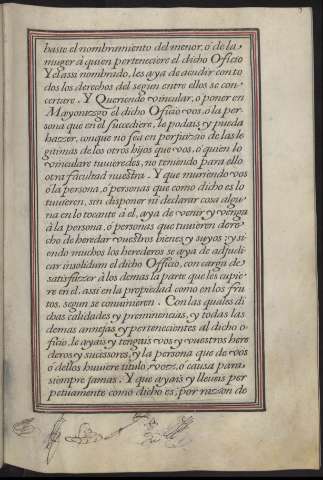 haste el nombramiento del menor, o de la
muger â quien perteneciere el dicho Officio
Y el assi nombrado, les aya de acudir con to
dos los derechos del segun entre ellos se con-
certare. Y Queriendo vincular, o poner en
Mayorazgo el dicho Officio vos, o la per
sona que en él succediere, lo podais y pueda
hazer, conque no sea en perjuizio de las le
gitimas de los otros hijos que vos, o quien lo
vinculare tuvieredes, no teniendo para ello
otra facultad nuestra. Y que muriendo vos
o la persona, o personas que como dicho es lo
tuvieren, sin disponer ni declarar cosa algu
na en lo tocante â el, aya de venir y venga
â la persona, o personas que tuvieren dere
cho de heredar vuestros bienes y suyos; y si
endo muchos los herederos se aya de adjudi
car insolidum el dicho Officio, con carga de
satisfazer â los demas la parte que les cupie
re en él, assi en la propiedad como en los fru
tos, segun se convinieren. Con las quales di
chas calidades y preminencias, y todas las
demas annejas y pertenecientes al dicho o-
ficio, le ayais y tengais vos y vuestros here
deros y sucessores, y la persona que de vos
o dellos huviere titulo, voz, o causa para
siempre jamas. Y que ayais y lleveis per
petuamente como dicho es, por razon de